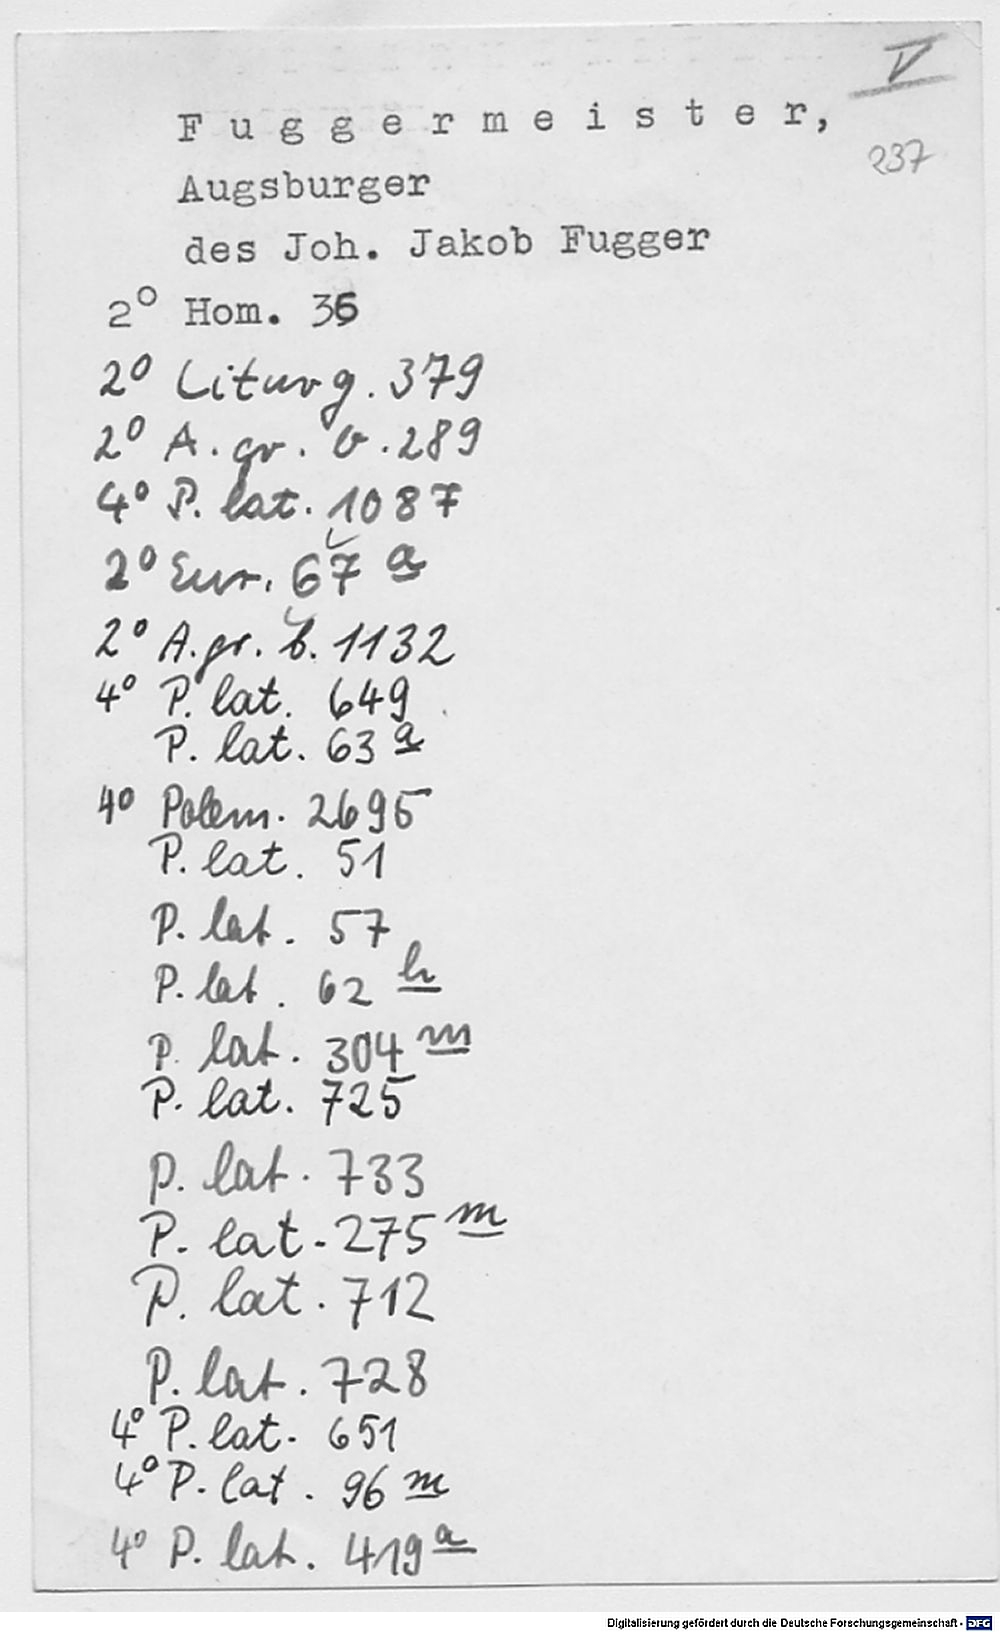 V
F u g g e r m e i s t e r,
237
Augsburger
des Joh. Jakob Fugger
2° Hom. 36
2° Liturg. 379
2° A. gr. b. 289
4° P. lat. 1087
2° Eur. 67 a
2° A. gr. b. 1132
4° P. lat. 649
P. lat. 63 a
4° Polem. 2695
P. lat. 51
P. lat. 57
P. lat. 62 h
P. lat. 304 m
P. lat. 725
P. lat. 733
P. lat. 275 m
P. lat. 712
P. lat. 728
4° P. lat. 651
4° P. lat. 96 m
4° P. lat. 419 a
Digitalisierung gefördert durch die Deutsche Forschungsgemeinschaft - DFG